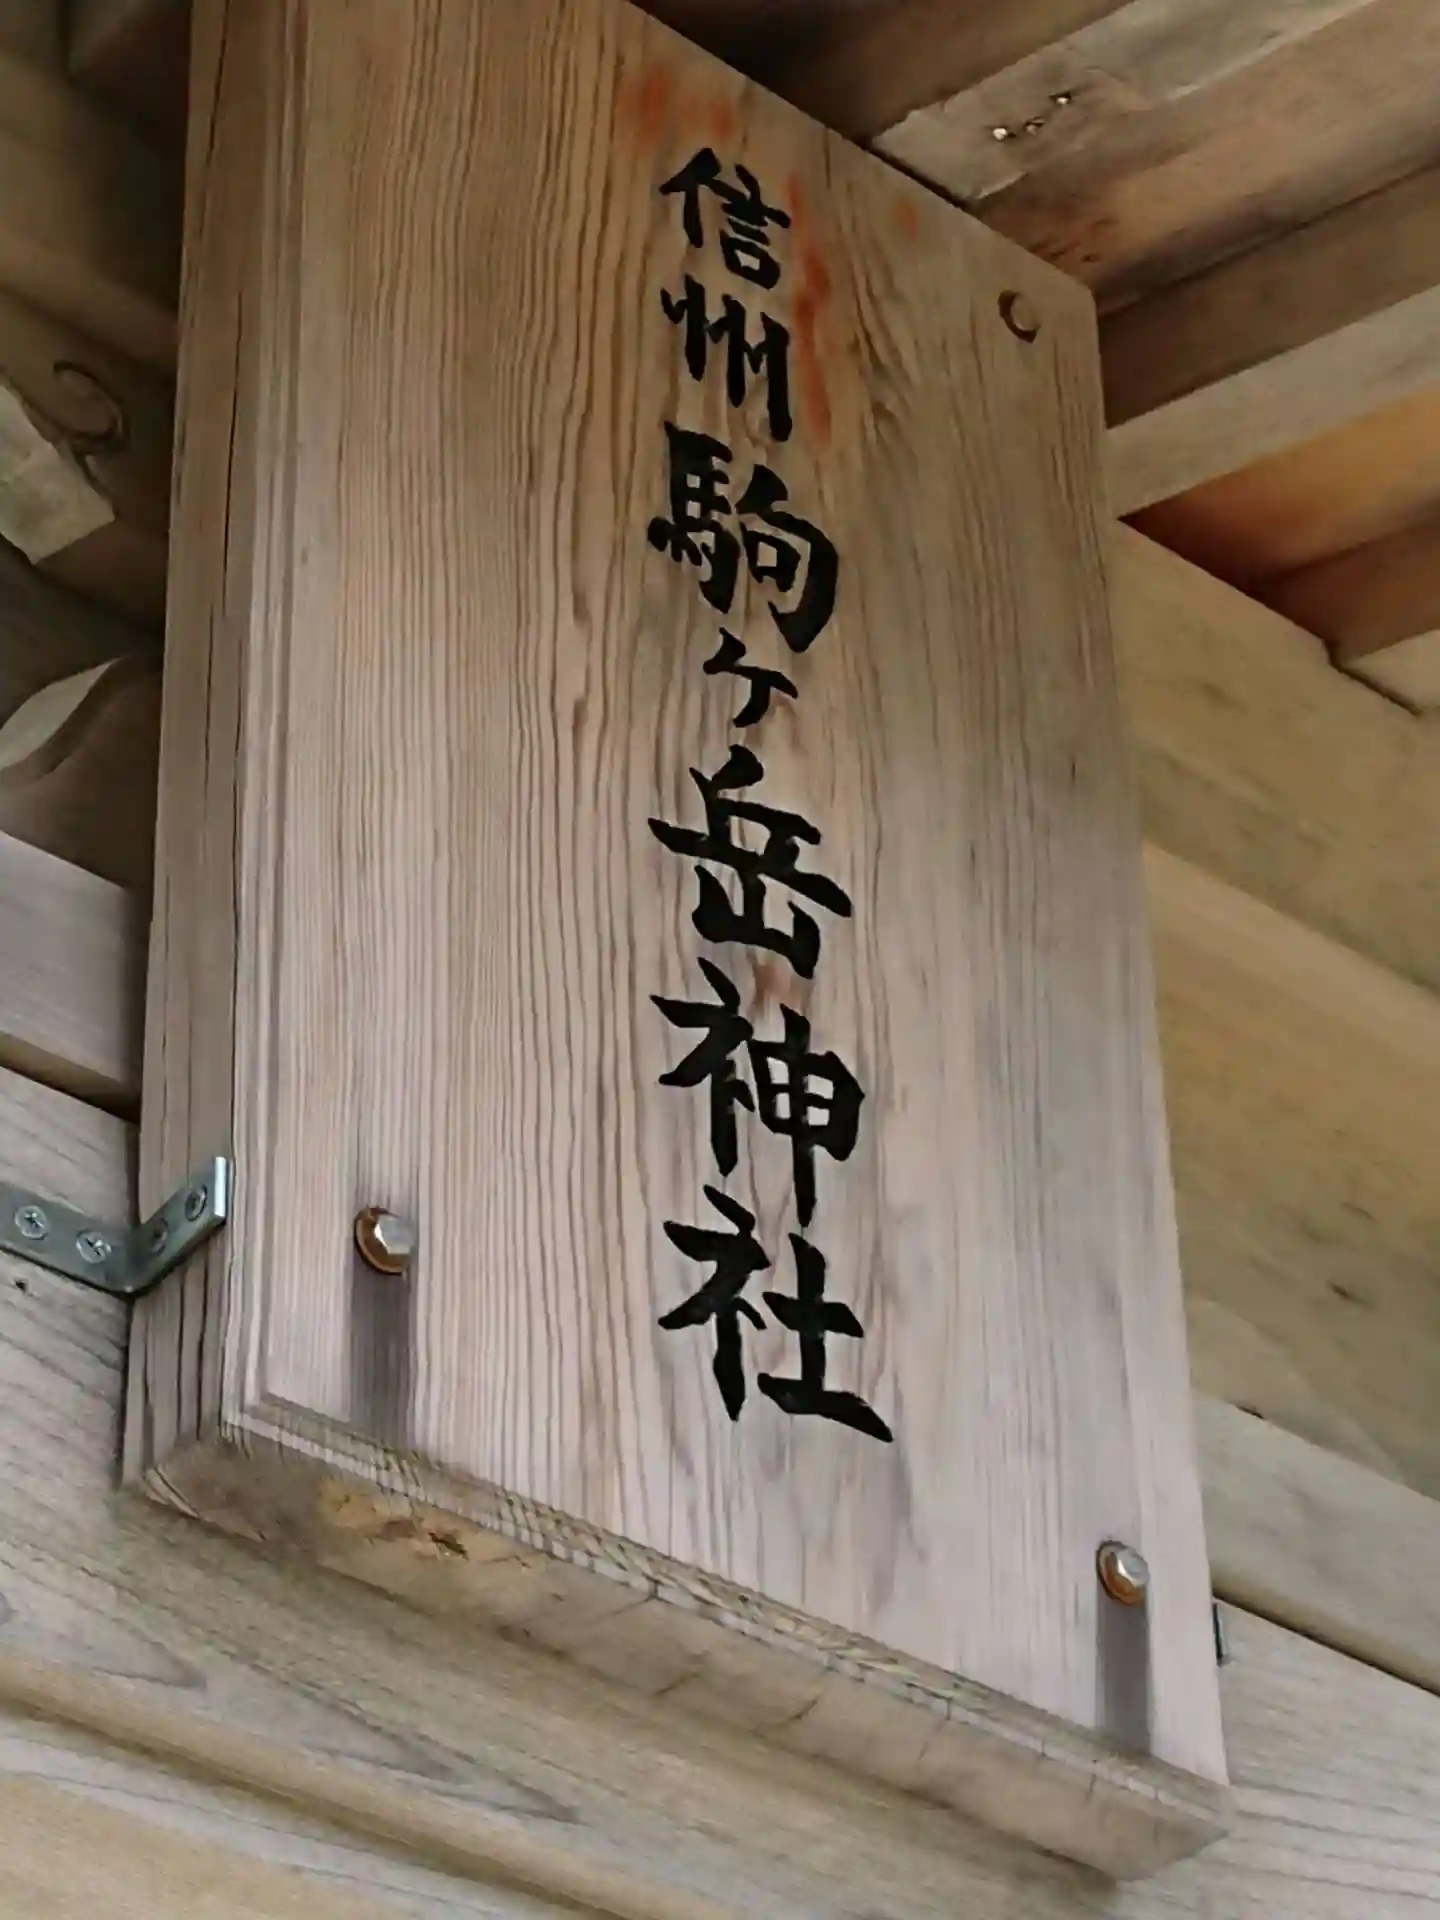 信州駒ヶ岳神社